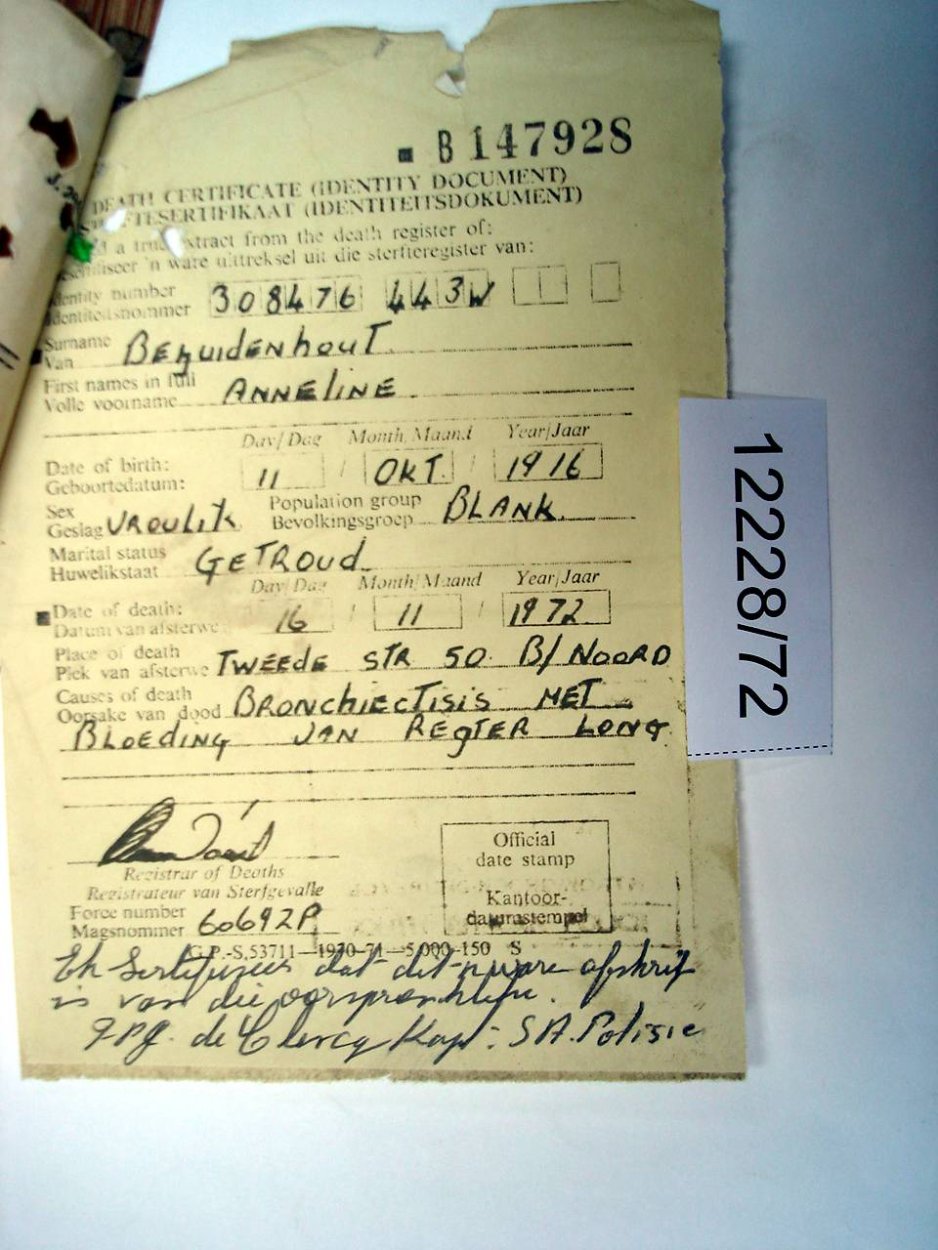 B 147928
DEATH CERTIFICATE (IDENTITY DOCUMENT)
(IDENTITEITSDOKUMENT)
a true extract from the death register of:
'n ware uittreksel uit die sterfteregister van:
Identity number 308476 443W
Identiteitsnommer
Surname Bezuidenhout
Van
First names in full ANNELINE
Volle voorname
Day/Dag Month/Maand Year/Jaar
Date of birth: 11 / OKT. / 1916
Geboortedatum:
Sex VROULIK Population group BLANK.
Geslag Bevolkingsgroep
Marital status GETROUD
Huwelikstaat
Day/Dag Month/Maand Year/Jaar
Date of death: 16 / 11 / 1972
Datum van afsterwe
Place of death TWEEDE STR 50 B/NOORD
Plek van afsterwe
Causes of death BRONCHIECTISIS MET
Oorsake van dood
BLOEDING VAN REGTER LONG
Registrar of Deaths
Registrateur van Sterfgevalle
Official
date stamp
Kantoor-
datumstempel
Force number 60692P
Magsnommer
G.P.-S.53711—1970-71—5,000-150 S
Ek Sertifiseer dat dit 'n ware afskrif
is van die oorspronklike.
de Clercq Kapt: S.A. Polisie
12228/72